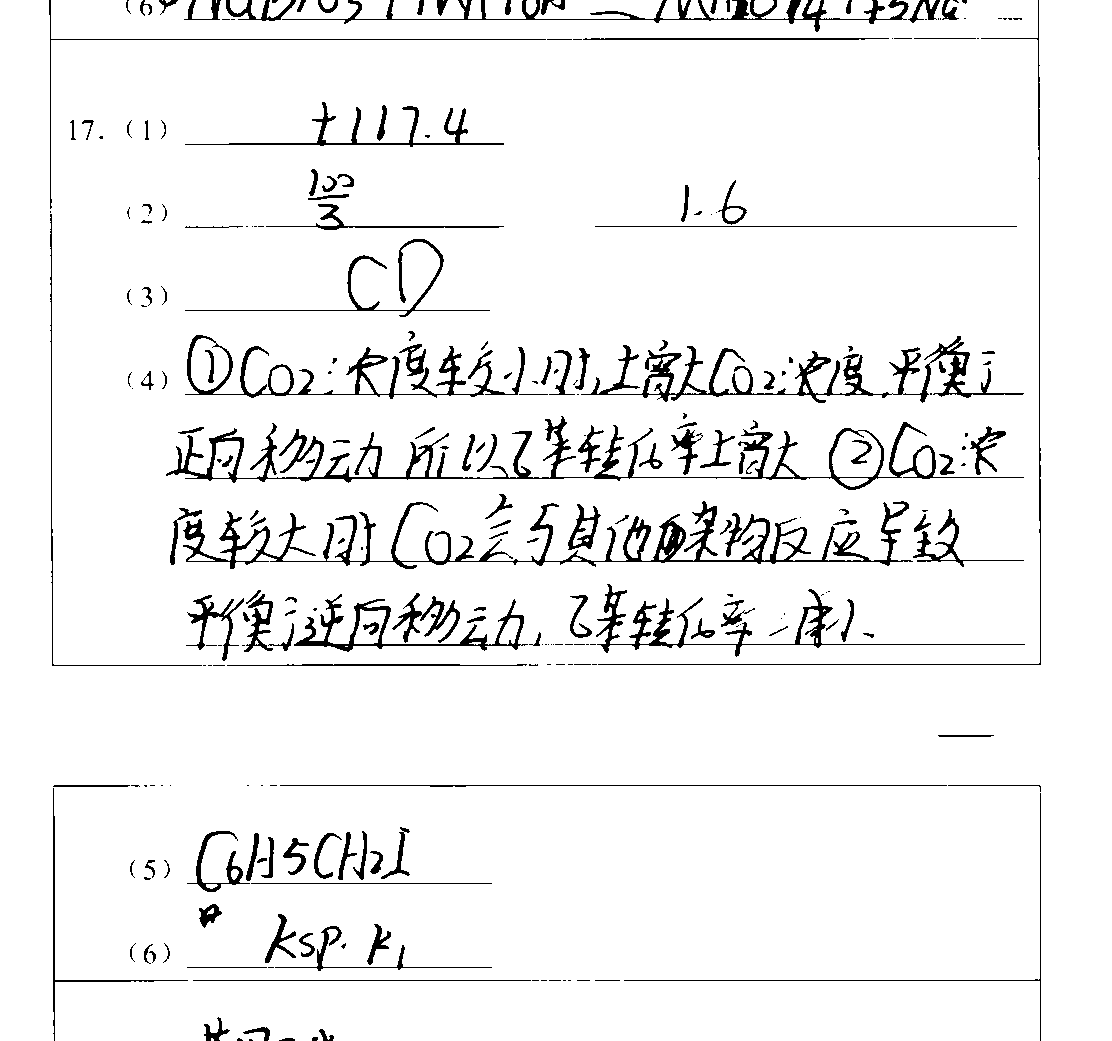 (6)
17.(1) +117.4
(2) 100/3 1.6
(3) CD
(4) ①CO2浓度较小时,增大CO2浓度,平衡
正向移动 所以乙苯转化率增大 ②CO2浓
度较大时 CO2会与其他杂物反应导致
平衡逆向移动,乙苯转化率减小.
(5) C6H5CH2I
(6) Ksp·K1